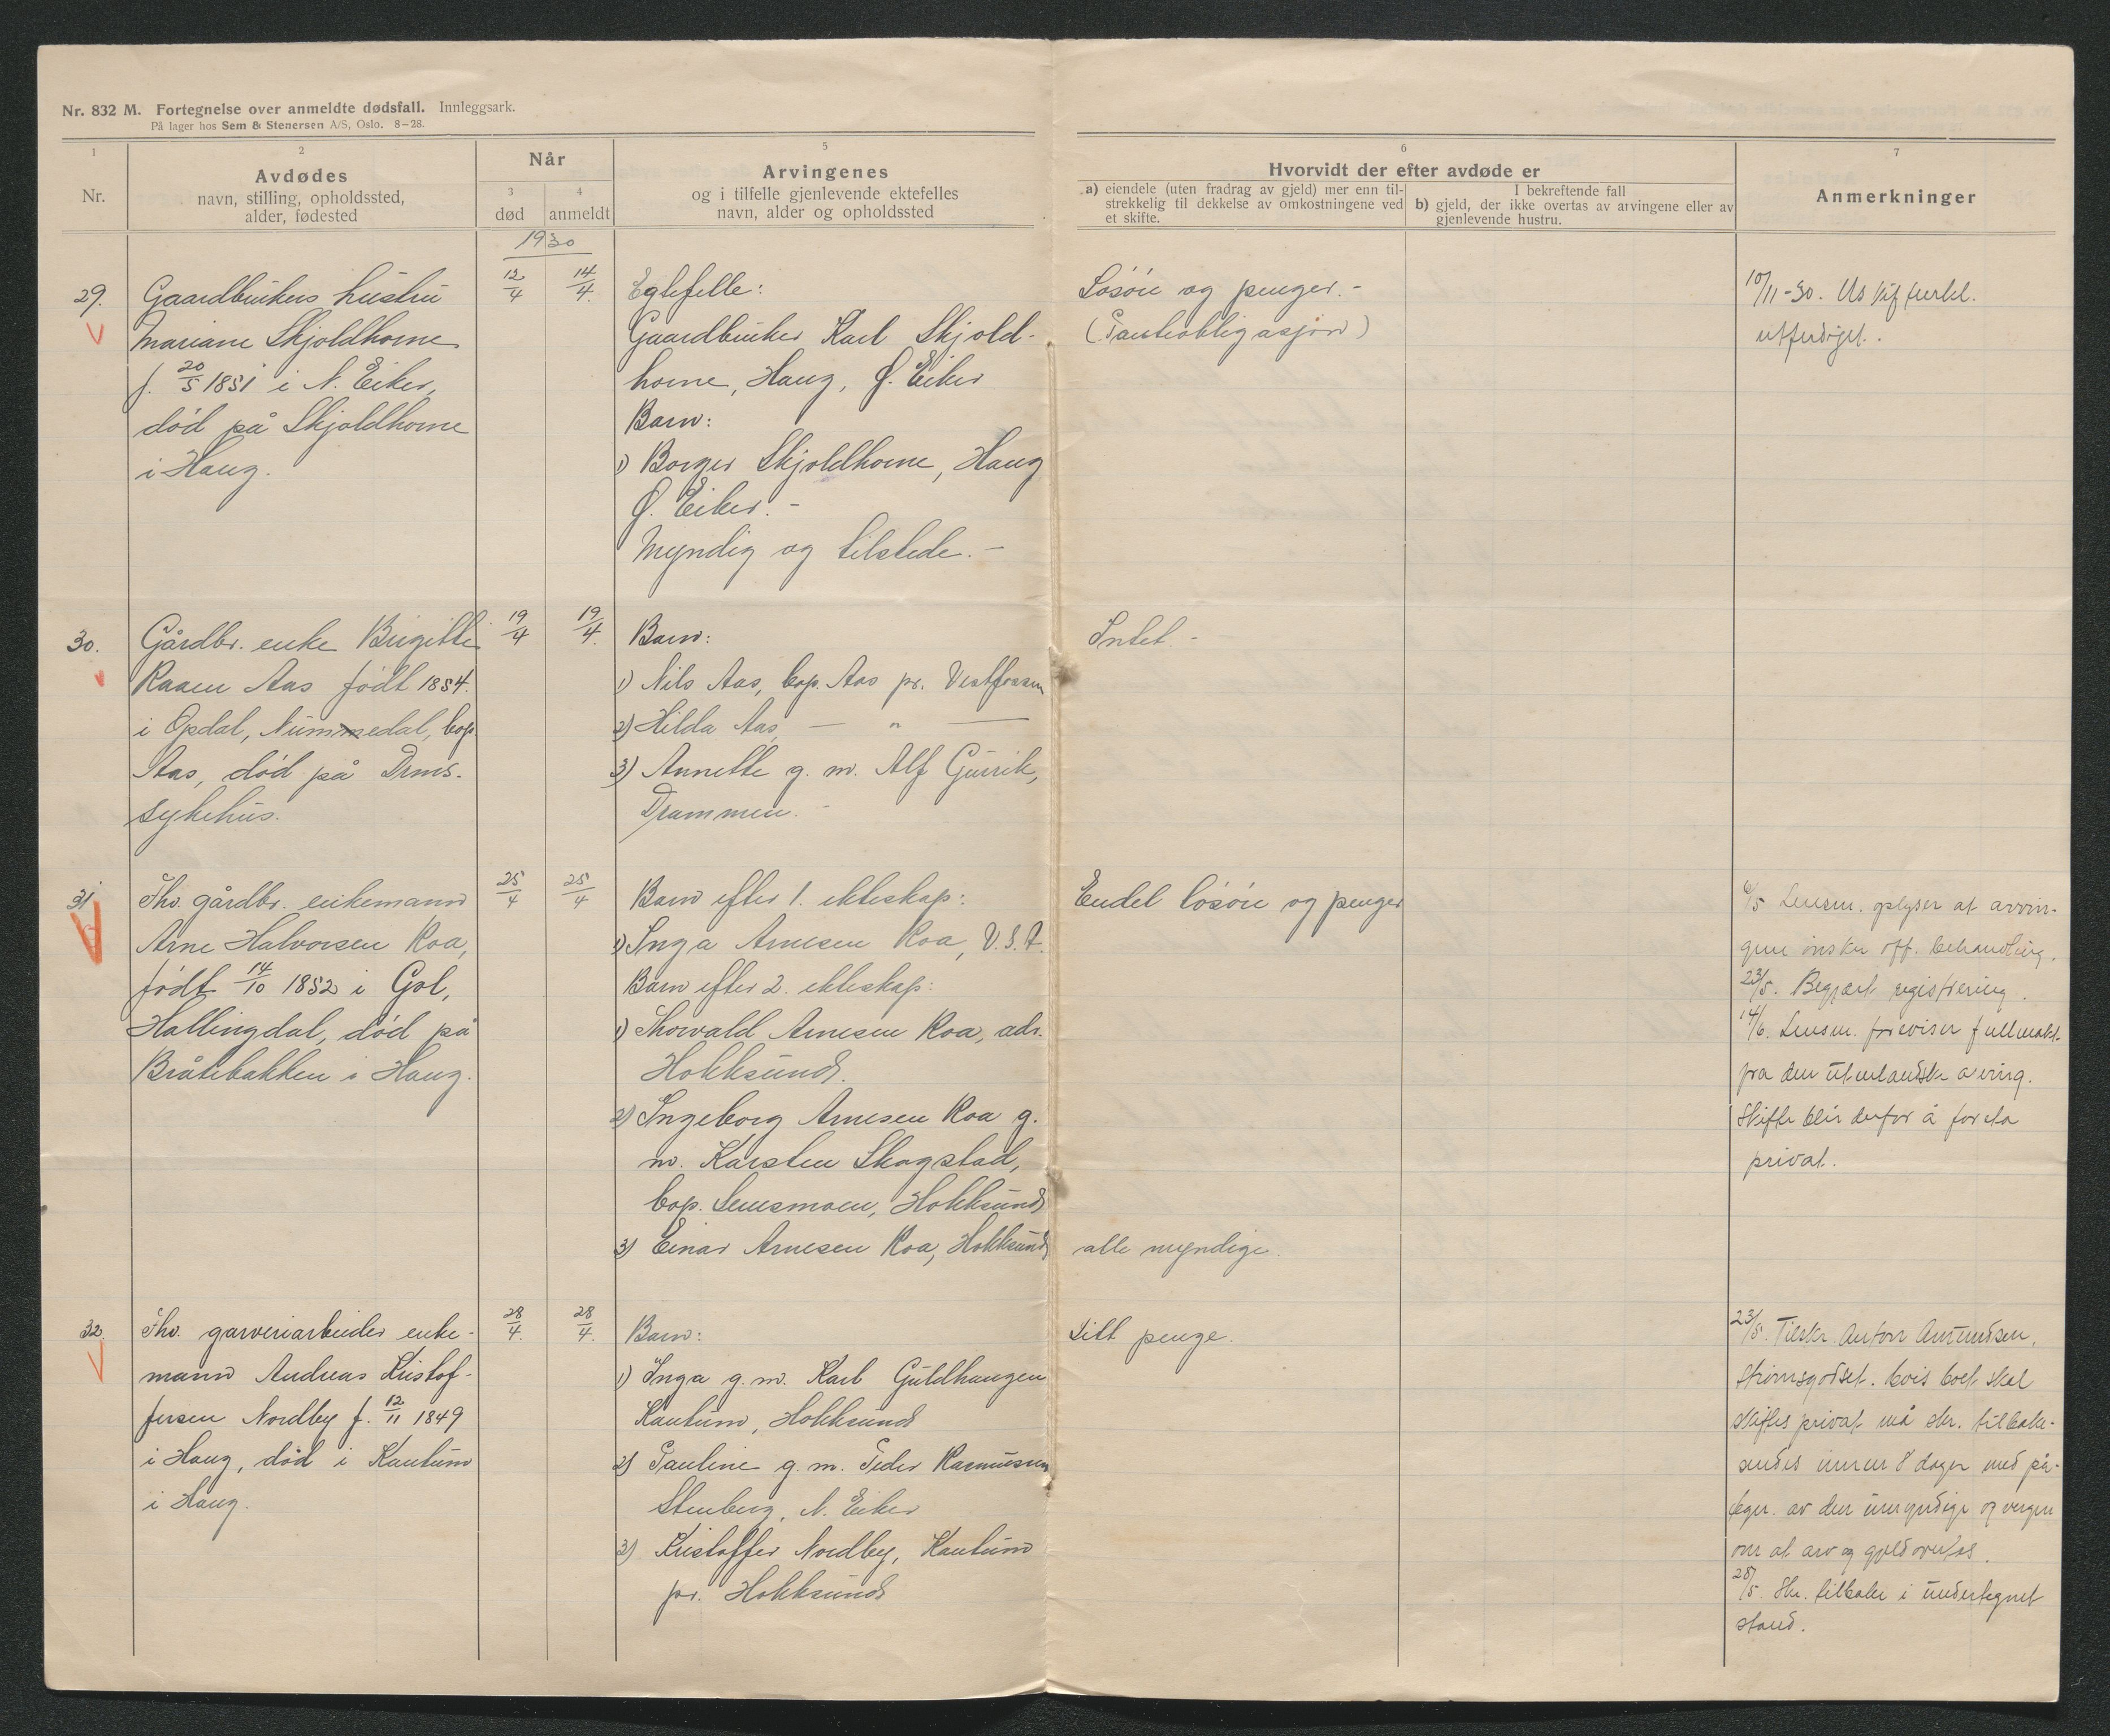 Nr. 832 M. Fortegnelse over anmeldte dødsfall. Innleggsark.
På lager hos Sem & Stenersen A/S, Oslo. 8-28.
1
Nr.
2
Avdødes
navn, stilling, opholdssted,
alder, fødested
Når
3
død
4
anmeldt
5
Arvingenes
og i tilfelle gjenlevende ektefelles
navn, alder og opholdssted
6
Hvorvidt der efter avdøde er
a) eiendele (uten fradrag av gjeld) mer enn til-
strekkelig til dekkelse av omkostningene ved
et skifte.
I bekreftende fall
b) gjeld, der ikke overtas av arvingene eller av
gjenlevende hustru.
7
Anmerkninger
1930
29.
Gaardbrukers hustru
Mariane Skjoldhorne
f. 20/5 1851 i N. Eiker,
død på Skjoldhorne
i Haug.
12/4
14/4.
Egtefelle:
Gaardbruker Karl Skjold-
horne, Haug, Ø. Eiker
Barn:
1) Borger Skjoldhorne, Haug
Ø. Eiker. -
Myndig og tilstede. -
Løsøre og penger. -
(Panteobligasjon)
10/11-30. Us
utferdiget.
30.
Gårdbr. enke Birgitte
Raaen Aas født 1854.
i Opdal, Nummedal, bop.
Aas, død på Drms.
sykehus.
19/4
19/4.
Barn:
1) Nils Aas, bop. Aas pr. Vestfossen
2) Hilda Aas, — " —
3) Annette g. m. Alf Gurrik,
Drammen. -
Intet. -
31.
Fhv. gårdbr. enkemann
Arne Halvorsen Roa,
født 14/10 1852 i Gol,
Hallingdal, død på
Bråtebakken i Haug.
25/4
25/4
Barn efter 1. ekteskap:
1) Inga Arnesen Roa, U.S.A.
Barn efter 2. ekteskap:
1) Thorvald Arnesen Roa, adr.
Hokksund.
2) Ingeborg Arnesen Roa g.
m. Karsten Skogstad,
bop. Lensmoen, Hokksund
3) Einar Arnesen Roa, Hokksund
Endel løsøre og penger
alle myndige.
6/5 Lensm. oplyser at arvin-
gene ønsker off. behandling.
23/5. Begjært registrering.
14/6. Lensm. foreviser fullmakt
fra den utenlandske arving.
Skifte blir derfor å foreta
privat.
32.
Fhv. garveriarbeider enke-
mann Andreas Kristof-
fersen Nordby f. 12/11 1849
i Haug, død i Kantum
i Haug.
28/4.
28/4.
Barn:
1) Inga g. m. Karl Guldhaugen
Kantum, Hokksund
2) Pauline g. m. Peder Rasmussen
Stenberg, N. Eiker
3) Kristoffer Nordby, Kantum
pr. Hokksund
Litt penge.
23/5. Tilskr. Anton Amundsen,
Strømsgodset. hvis boet skal
skiftes privat må skr. tilbake-
sendes innen 8 dager med på-
tegn. av den umyndige og vergen
om at arv og gjeld overtas.
28/5. Skr. tilbake i undertegnet
stand.